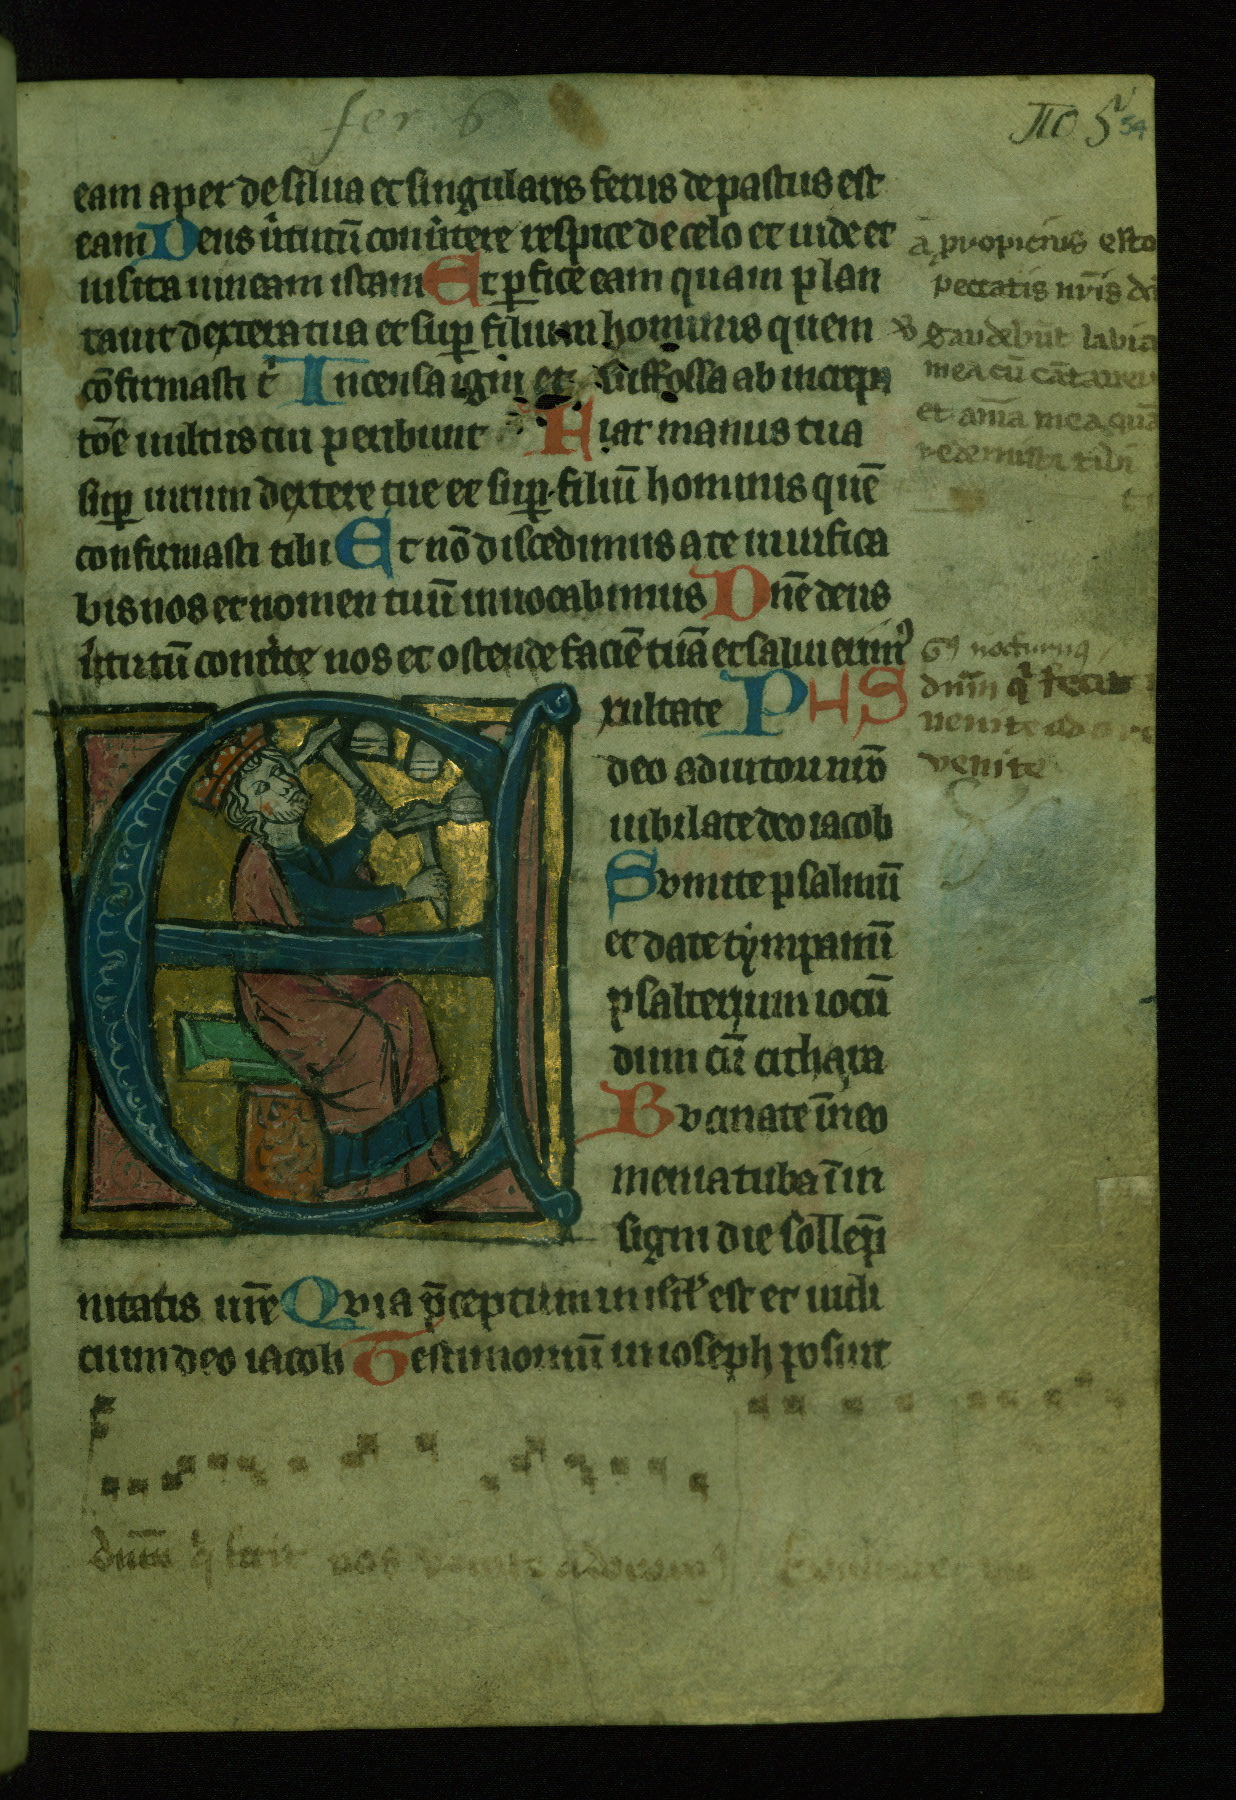 fer 6
54
eam aper de silua et singularis ferus depastus est
eam Deus u̾tutū conu̾tere respice de celo et uide et
uisita uineam istam Et ꝑfice eam quam plan
tauit dextera tua et suꝑ filium hominis quem
cōfirmasti t̾ Incensa igni et suffossa ab increpa
tōe uultus tui peribunt Fiat manus tua
suꝑ uirum dextere tue et suꝑ filiū hominis quē
confirmasti tibi Et nō discedimus a te uiuifica
bis nos et nomen tuū inuocabimus Dn̄e deus
u̾tutū conu̾te nos et ostende faciē tuā et salui erim᷒
Exultate PHS
deo adiutori nr̄o
iubilate deo iacob
Sumite psalmū
et date tympanū
psalterium iocū
dum cū cithara
Bucinate ī neo
menia tuba ī in
signi die sollep̄
nitatis ur̄e Quia p̄ceptum in isrl̾ est et iudi
cium deo iacob Testimoniū in ioseph posuit
a propicius esto
peccatis nr̄is
Gaudebūt labia
mea cū cātauero
et aīa mea quā
redemisti tibi
dnm̄ q̾ fecit
venite
venite
dnm̄ q̾ fecit nos venite